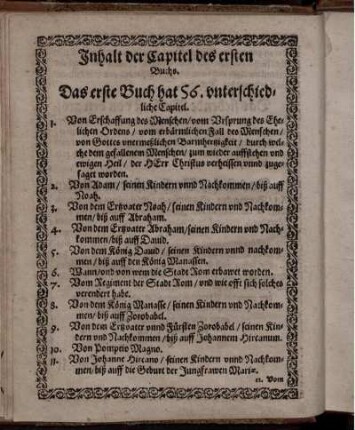 Inhalt der Capitel des ersten
Buchs.
Das erste Buch hat 56. vnterschied-
liche Capitel.
1. Von Erschaffung des Menschen / vom Vrsprung des Ehe-
lichen Ordens / vom erbärmlichen Fall des Menschen /
von Gottes vnermeßlichen Barmhertzigkeit / durch wel-
che dem gefallenem Menschen / zum wieder auffstehen vnd
ewigen Heil / der HErr Christus verheissen vnnd zuge-
saget worden.
2. Von Adam / seinen Kindern vnnd Nachkommen / biß auff
Noah.
3. Von dem Ertzvater Noah / seinen Kindern vnd Nachkom-
men / biß auff Abraham.
4. Von dem Ertzvater Abraham / seinen Kindern vnd Nach-
kommen / biß auff Dauid.
5. Von dem König Dauid / seinen Kindern vnnd nachkom-
men / biß auff den König Manassen.
6. Wann / vnd von wem die Stadt Rom erbawet worden.
7. Vom Regiment der Stadt Rom / vnd wie offt sich solches
verendert habe.
8. Von dem König Manasse / seinen Kindern vnd Nachkom-
men / biß auff Zorobabel.
9. Von dem Ertzvater vnnd Fürsten Zorobabel / seinen Kin-
dern vnd Nachkommen / biß auff Johannem Hircanum.
10. Von Pompeio Magno.
11. Von Johanne Hircano / seinen Kindern vnnd Nachkom-
men / biß auff die Geburt der Jungfrawen Mariæ.
12. Vom